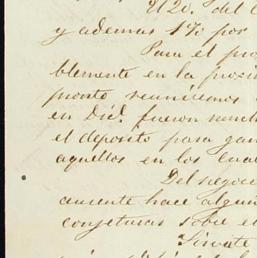 El 20. del C
y ademas 1% por
Para el pro
blemente en la proxi
pronto reunirémos
en Dic!. fueron much
el deposito para gan
aquellos en los cual
Del negoci
camente hace algun
conjeturas sobre el
Sirvate